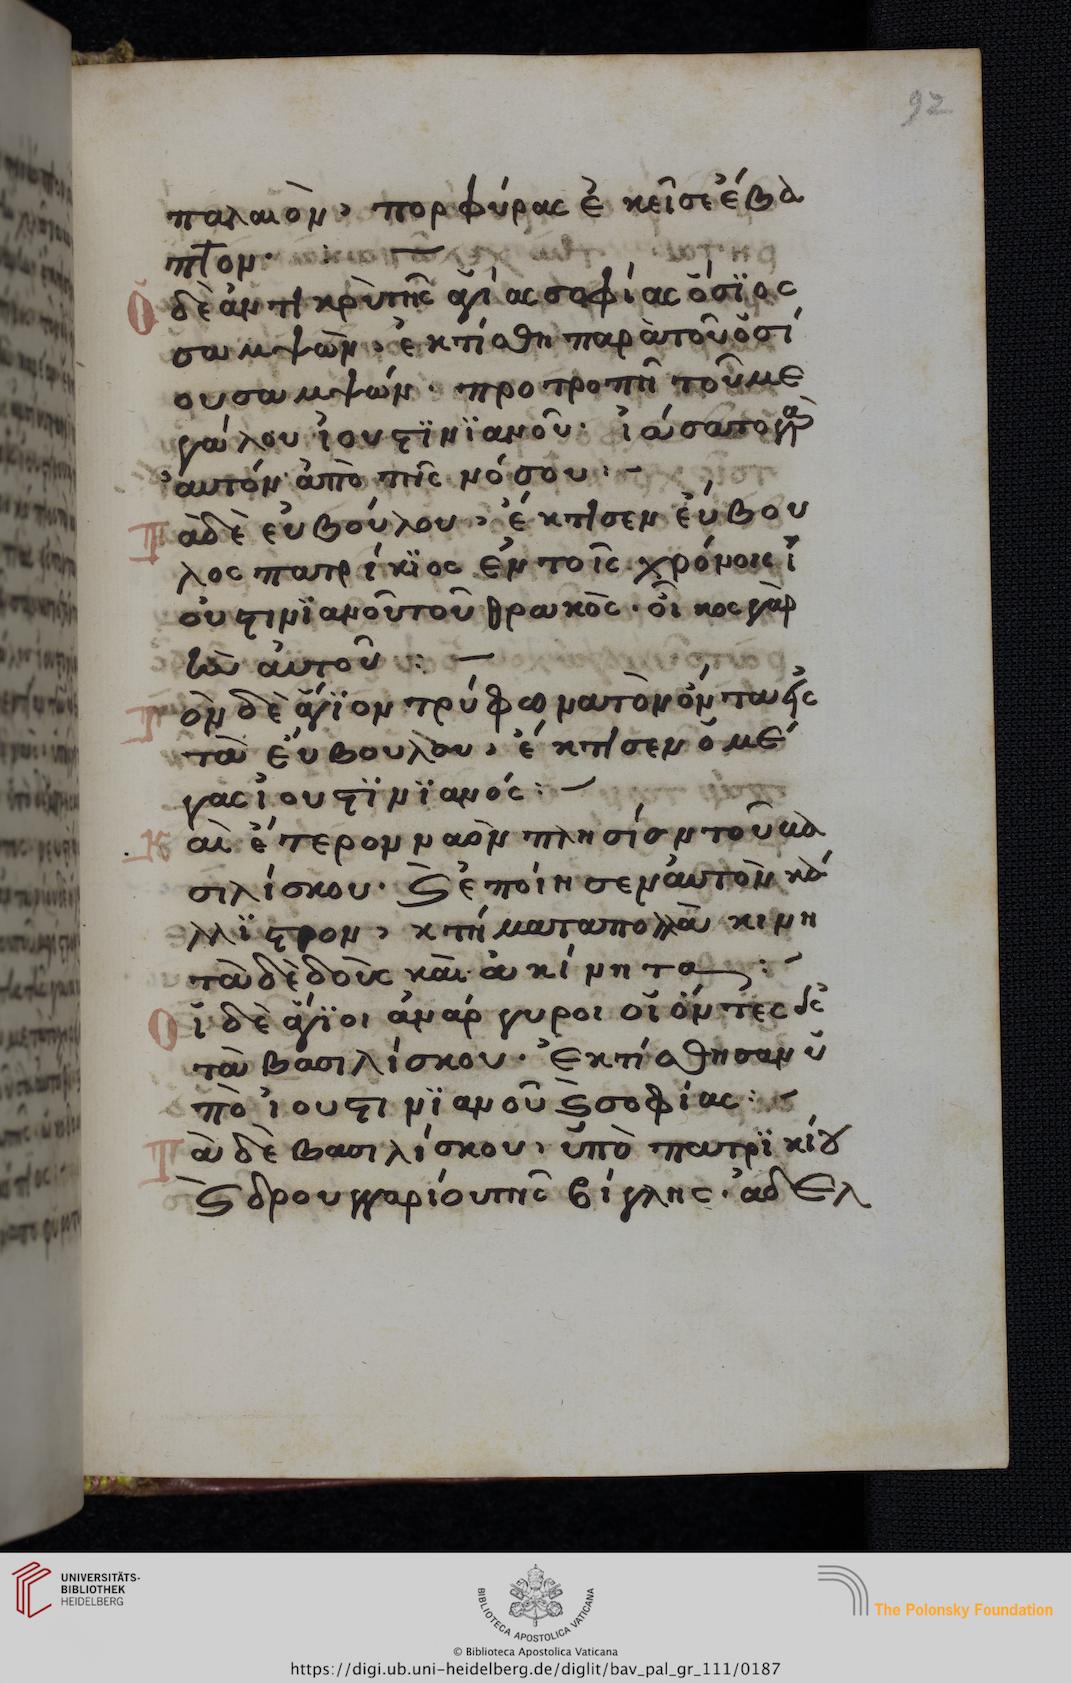 92
παλαιὸν, πορφύρας ἐκεῖσε ἔβα
πτον·
Ὁ
δὲ ἀντικρὺ τῆς ἁγίας σοφίας ὅσϊος
σαμψὼν, ἐκτίσθη παρὰ τοῦ ὁσί
ου σαμψών· προτροπῆ τοῦ με
γάλου ἰουστϊνϊανοῦ· ἰάσατο γὰρ
αὐτόν ἀπὸ τῆς νόσου:
Τ
ὰ δὲ εὐβούλου, ἔκτισεν εὔβου
λος πατρίκϊος ἐν τοῖς χρόνοις ἰ
ουστινϊανοῦ τοῦ θρακὸς· οἶκος γὰρ
ἦν αὐτοῦ:
Τ
ὸν δὲ ἅγϊον τρύφωνα τὸν ὄντα εἰς
τὰ εὐβούλου, ἔκτισεν ὁ μέ
γας ἰουστϊνϊανός:
Κ
αὶ ἕτερον ναὸν πλησίον τοῦ βα
σιλίσκου· καὶ ἐποίησεν αὐτὸν κά
λλϊστρον, κτήματα πολλὰ κινη
τὰ δὲ δοὺς καὶ ἀκίνητα:
Ο
ἱ δὲ ἅγϊοι ἀνάργυροι οἱ ὄντες εἰς
τὰ βασιλίσκου· ἐκτίσθησαν ὑ
πὸ ἰουστινϊανοῦ καὶ σοφίας:
Τ
ὰ δὲ βασιλίσκου, ὑπὸ πατρϊκίου
καὶ δρουγγαρίου τῆς βίγλης· ἀδελ
UNIVERSITÄTS-
BIBLIOTHEK
HEIDELBERG
BIBLIOTECA APOSTOLICA VATICANA
The Polonsky Foundation
© Biblioteca Apostolica Vaticana
https://digi.ub.uni-heidelberg.de/diglit/bav_pal_gr_111/0187